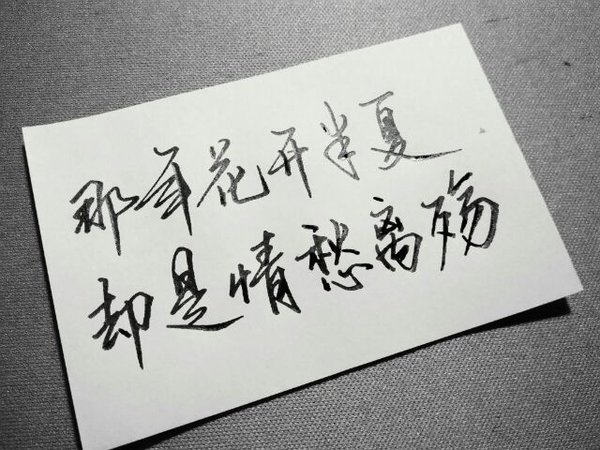 那年花开半夏
却是情愁离殇